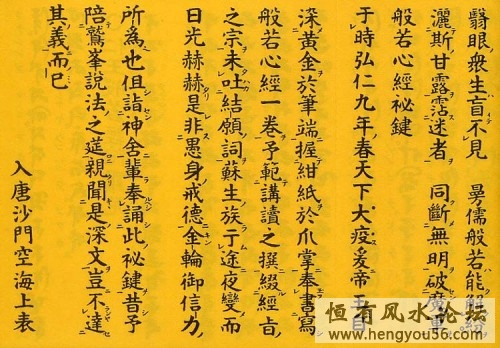 翳眼衆生盲不見　曼儒般若能解紛
灑斯甘露霑迷者　同斷無明破魔軍
般若心經祕鍵
于時弘仁九年春天下大疫爰帝皇自
染黄金於筆端握紺紙於爪掌奉書寫
般若心經一卷予範講讀之撰綴經旨
之宗未吐結願詞蘇生族于途夜變而
日光赫赫是非愚身戒德金輪御信力
所為也但詣神舍輩奉誦此祕鍵昔予
陪鷲峯説法之莚親聞是深文豈不達
其義而已
入唐沙門空海上表
恒有风水论坛
www.hengyou36.com